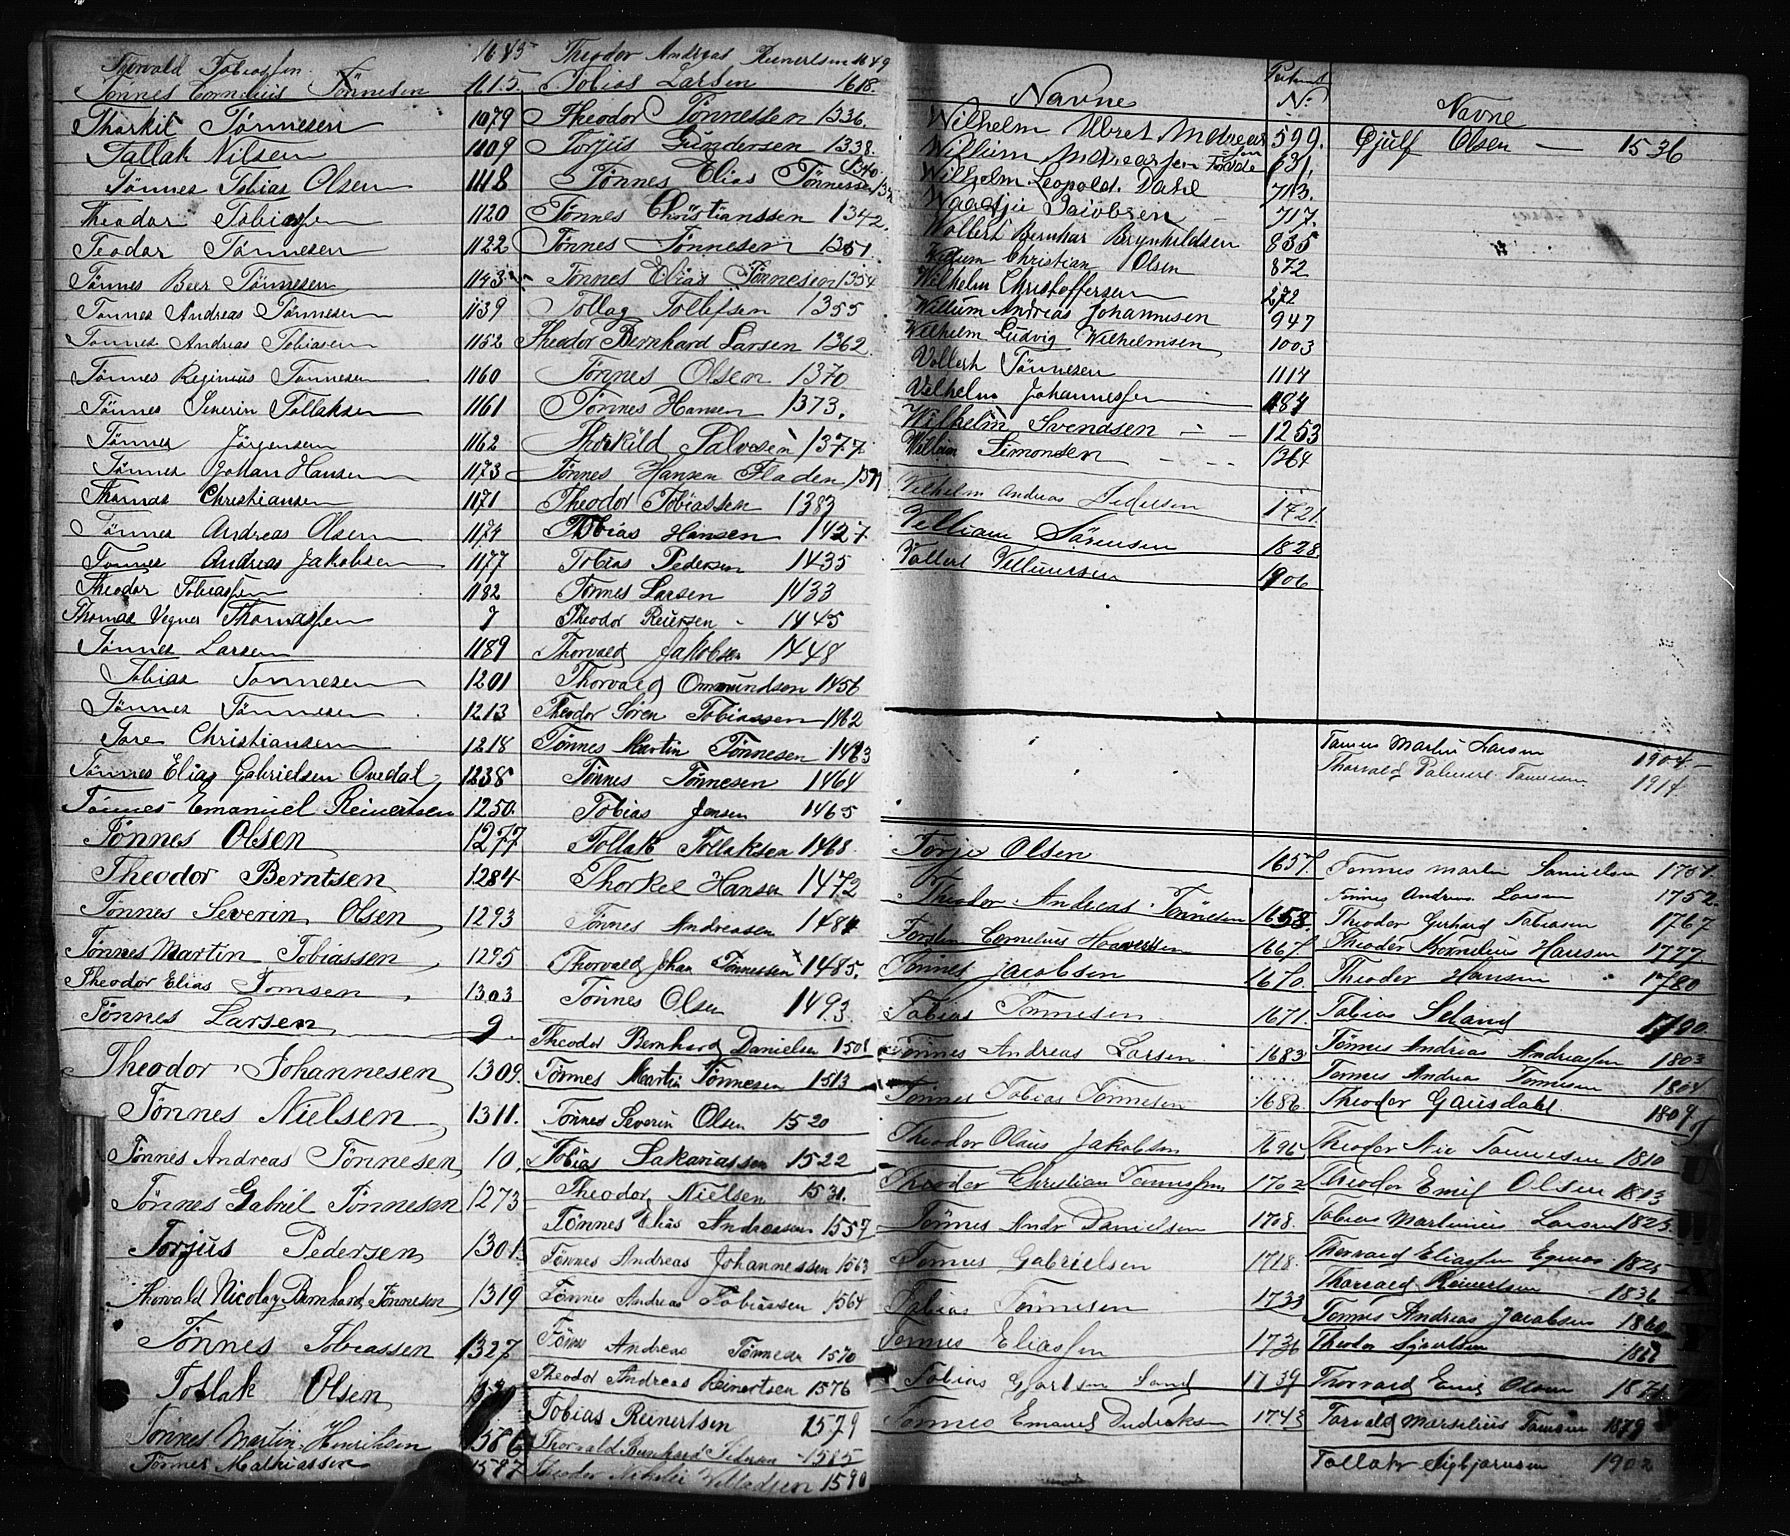 Torvald Tobiassen 1645
Tønnes Cornelius Tønnesen 1615.
Thorkil Tønnesen 1079
Tallak Nilsen 1109
Tønnes Tobias Olsen 1118
Theodor Tobiassen 1120
Teodor Tønnesen 1122
Tønnes Beer Tønnesen 1143
Tønnes Andreas Tønnesen 1139
Tønnes Andreas Tobiasen 1152
Tønnes Reginius Tønnesen 1160
Tønnes Severin Tollaksen 1161
Tønnes Jørgensen 1162
Tønnes Johan Hansen 1173
Thomas Christiansen 1171
Tønnes Andreas Olsen 1174
Tønnes Andreas Jakobsen 1177
Theodor Tobiassen 1182
Thomas Vegner Thomassen 7
Tønnes Larsen 1189
Tobias Tønnesen 1201
Tønnes Tønnesen 1213
Tore Christiansen 1218
Tønnes Elias Gabrielsen Ovedal 1238
Tønnes Emanuel Reinertsen 1250
Tønnes Olsen 1277
Theodor Berntsen 1284
Tønnes Severin Olsen 1293
Tønnes Martin Tobiassen 1295
Theodor Elias Tomsen 1303
Tønnes Larsen 9
Theodor Johannesen 1309
Tønnes Nielsen 1311.
Tønnes Andreas Tønnesen 10
Tønnes Gabriel Tønnesen 1273
Torjus Pedersen 1301
Thorvald Nicolay Bernhard Tønnesen 1319
Tønnes Tobiassen 1327
Tollak Olsen
Tønnes Martin Henriksen 1586
Tønnes Mathiassen 1587
Theodor Andreas Reinertsen 1649
Tobias Larsen 1618.
Theodor Tønnessen 1336.
Torjus Gundersen 1338.
Tønnes Elias Tønnessen 1340
Tønnes Christianssen 1342.
Tønnes Tønnesen 1351
Tønnes Elias Tønnesen 1354
Tollag Tollefsen 1355
Theodor Bernhard Larsen 1362.
Tønnes Olsen 1370
Tønnes Hansen 1373.
Thorkild Salvesen 1377.
Tønnes Hansen Fladen
Theodor Tobiassen 1383
Tobias Hansen 1427
Tobias Pedersen 1435
Tønnes Larsen 1433
Theodor Reiersen 1445
Thorvald Jakobsen 1448
Thorvald Omundsen 1456
Theodor Søren Tobiassen 1462
Tønnes Martin Tønnesen 1463
Tønnes Tønnesen 1464
Tobias Jensen 1465
Tollak Tollaksen 1468
Thorkel Hansen 1472
Tønnes Andreasen 1484
Thorvald Johan Tønnessen 1485.
Tønnes Olsen 1493
Theodor Bernhard Danielsen 1501
Tønnes Martin Tønnesen 1513
Tønnes Severin Olsen 1520
Tobias Sakariassen 1522
Theodor Nielsen 1531.
Tønnes Elias Andreassen 1557
Tønnes Andreas Johannessen 1563
Tønnes Andreas Tobiassen 1564
Tønnes Andreas Tønnesen 1570
Theodor Andreas Reinertsen 1576
Tobias Reinertsen 1579
Thorvald Bernhard 1585
Theodor 1590
Navne Patent No:
Wilhelm Andreas 599.
William Andreassen 631.
Wilhelm Leopold Dahl 713.
Jacobsen 717.
Wollert Bernhar Brynhildsen 835
Villum Christian Olsen 872
Wilhelm Christoffersen 272
Willum Andreas Johannesen 947
Wilhelm Ludvig Wilhelmsen 1003
Vollert Tønnesen 1114
Vilhelm Johannessen
Wilhelm Svendsen 1253
William Simonsen 1364
Vilhelm Andreas Pedersen 1421
Villiam Sørensen 1828
Vollert Villumsen 1906
Torje Olsen 1657.
Theodor Andreas Tønnesen 1658.
Torsten Cornelius 1667.
Tønnes Jacobsen 1670.
Tobias Tønnesen 1671.
Tønnes Andreas Larsen 1683
Tønnes Tobias Tønnesen 1686.
Theodor Olaus Jakobsen 1696
Theodor Christian Tønnessen 1702
Tønnes Andr Danielsen 1708.
Tønnes Gabrielsen 1718.
Tobias Tønnesen 1733
Tønnes Eliassen 1736
Tobias Sand 1739
Tønnes Emanuel Didriksen 1743
Navne
Øjulf Olsen — 1536
Tønnes Martin Larsen 1904 —
Thorvald Tønnesen 1914
Tønnes Martin Samuelsen 1751.
Tønnes Andreas Larsen 1752.
Theodor Gerhard Tobiasen 1767
Theodor Kornelius Hansen 1777
Theodor Hansen 1780
Tobias Seland 1790
Tønnes Andreas Andreassen 1803
Tønnes Andreas Tønnesen 1804
Theodor Gausdahl 1809
Theodor Nic Tønnesen 1810
Theodor Emil Olsen 1813
Tobias Martinius Larsen 1823.
Thorvald Eliassen 1825
Thorvald Reinertsen 1836
Tønnes Andreas Jacobsen 1860
Theodor
Thorvald Emil Olsen 1871
Torvald Marselius Tønnesen 1879
Tollak Sigbjørnsen 1902
U
W